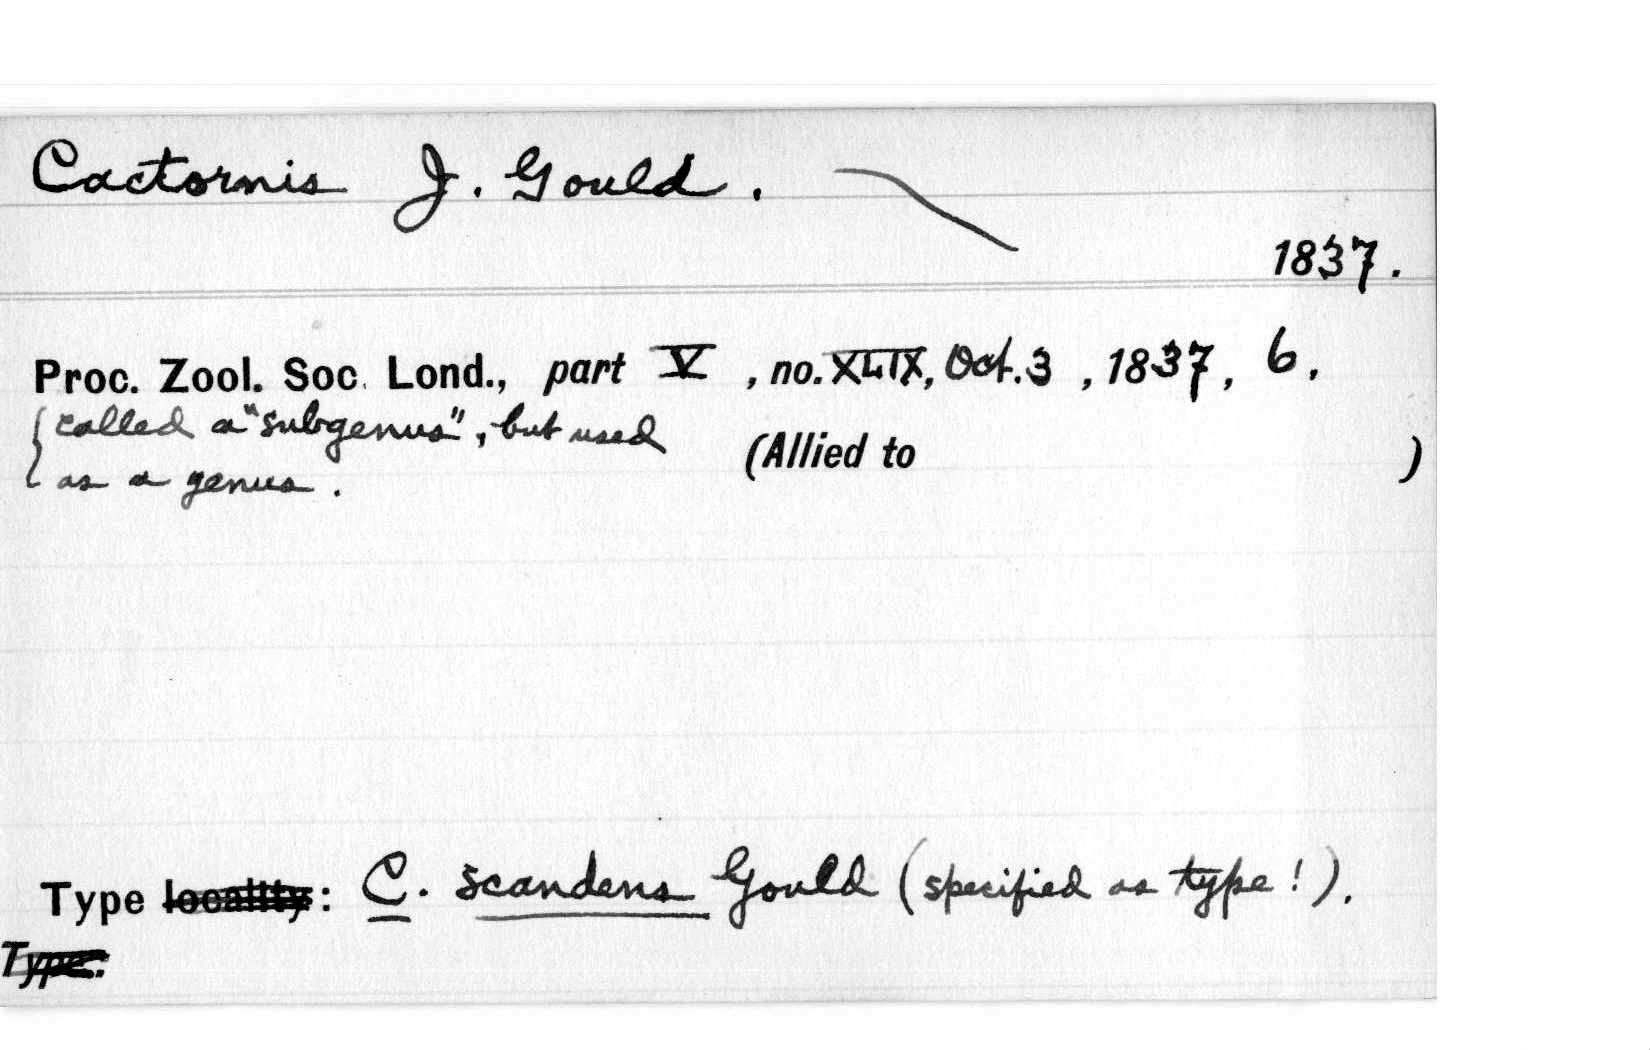 Cactornis J. Gould.
1837.
Proc. Zool. Soc. Lond., part V, no. XLIX, Oct. 3, 1837, 6.
{called a "subgenus", but used
as a genus.
(Allied to )
Type locality: C. scandens Gould (specified as type!).
Type: